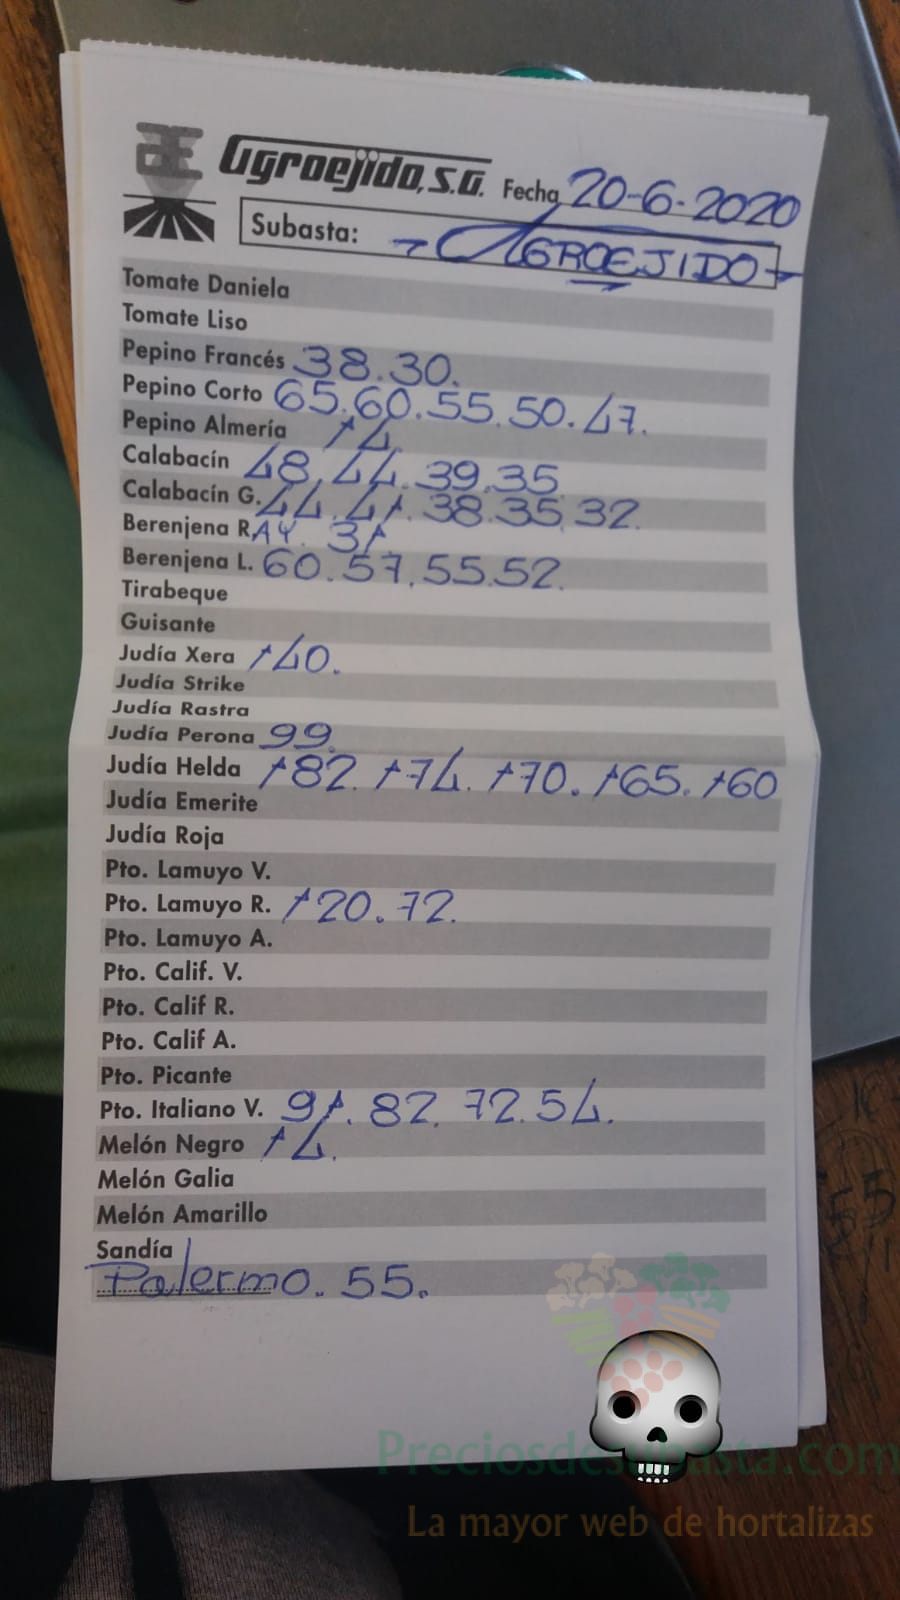 Agroejido, S.A. Fecha 20-6-2020
Subasta: AGROEJIDO
Tomate Daniela
Tomate Liso
Pepino Francés 38.30.
Pepino Corto 65.60.55.50.47.
Pepino Almería 14
Calabacín 48.44.39.35
Calabacín G. 44.41.38.35.32.
Berenjena RAY. 31
Berenjena L. 60.57.55.52.
Tirabeque
Guisante
Judía Xera 140.
Judía Strike
Judía Rastra
Judía Perona 99.
Judía Helda 182. 174. 170. 165. 160
Judía Emerite
Judía Roja
Pto. Lamuyo V.
Pto. Lamuyo R. 120.72.
Pto. Lamuyo A.
Pto. Calif. V.
Pto. Calif R.
Pto. Calif A.
Pto. Picante
Pto. Italiano V. 91.82.72.54.
Melón Negro 14.
Melón Galia
Melón Amarillo
Sandía
Palermo. 55.
La mayor web de hortalizas